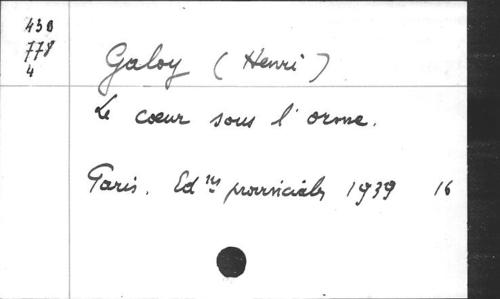 430
778
4
Galoy (Henri)
Le cœur sous l'orme.
Paris. Ed<sup>ns</sup> provinciales 1939 16